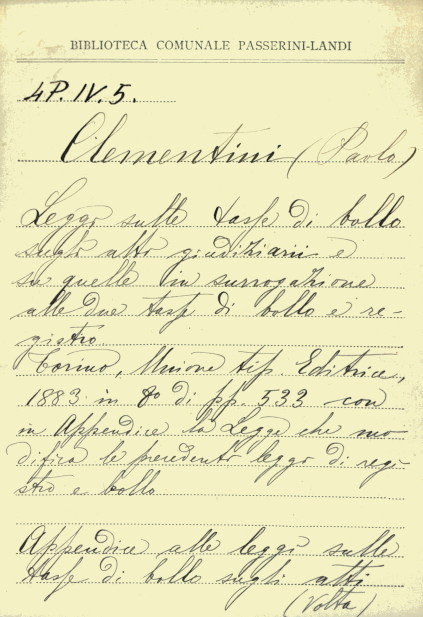 BIBLIOTECA COMUNALE PASSERINI-LANDI
4P.IV.5.
Clementini (Paolo)
Leggi sulle tasse di bollo
sugli atti giudiziarii e
su quelle in surrogazione
alle due tasse di bollo e re-
gistro
Torino, Unione tip. Editrice,
1883 in 8º di pp. 533 con
in Appendice la Legge che mo
difica le precedenti leggi di regi
stro e bollo
Appendice alle leggi sulle
tasse di bollo sugli atti
(Volta)